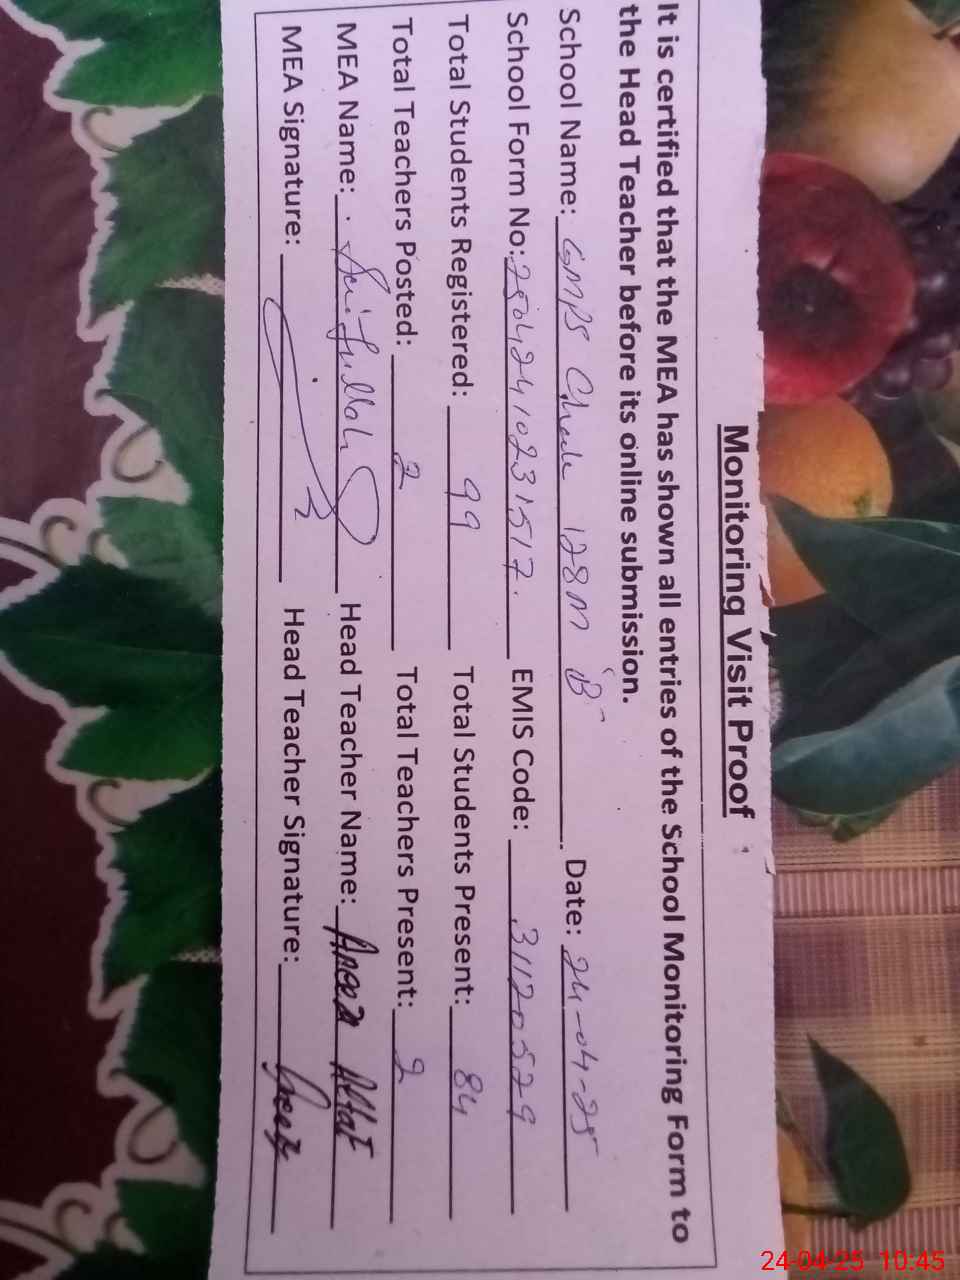 Monitoring Visit Proof
It is certified that the MEA has shown all entries of the School Monitoring Form to
the Head Teacher before its online submission.
School Name: GMPS Chak 128m B Date: 24-04-25
School Form No: EMIS Code: 31120529
Total Students Registered: 99 Total Students Present: 84
Total Teachers Posted: 2 Total Teachers Present: 2
MEA Name: Saifullah Head Teacher Name: Altaf
MEA Signature: Head Teacher Signature:
24-04-25 10:45